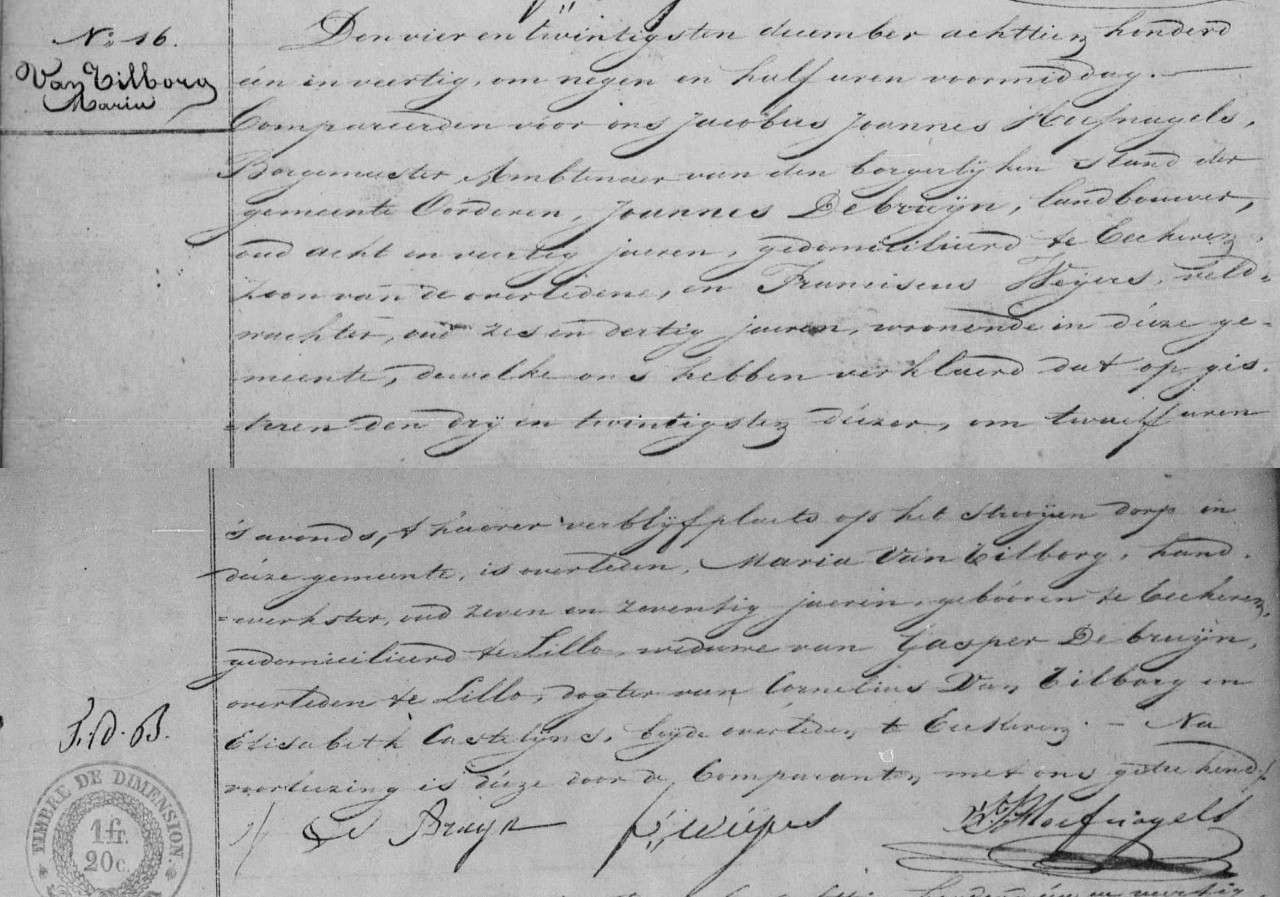 N: 16.
Van Tilborg
Maria
Den vier en twintigsten december achttien honderd
één en veertig, om negen en half uren voormiddag. —
Compareerden vóor ons Jacobus Joannes Hoefnagels,
Borgemeester, Ambtenaer van den borgerlyken stand der
gemeente Oorderen, Joannes Debruÿn, landbouwer,
oud acht en veertig jaeren, gedomicilieerd te Eeckeren,
zoon van de overledene, en Franciscus Weÿers, veld-
wachter, oud zes en dertig jaeren, woonende in déeze ge-
meente, dewelke ons hebben verklaerd dat op gis-
=teren den drÿ en twintigsten déezer, om twaelf uren
's avonds, t' háerer verblÿfplaets op het strooÿen dorp in
déeze gemeente, is overleden, Maria Van Tilborg, hand-
=werkster, oud zeven en zeventig jaeren, gebooren te Eeckeren,
gedomicilieerd te Lillo, weduwe van Jasper De bruÿn,
overleden te Lillo, dogter van Cornelius Van Tilborg en
Elisabeth Castelÿns, beÿde overleden te Eeckeren. — Na
voorleezing is déeze door de Comparanten met ons geteekend /.
De Bruÿn
F: weijers
J J Hoefnagels
TIMBRE DE DIMENSION
1 fr.
20 c.